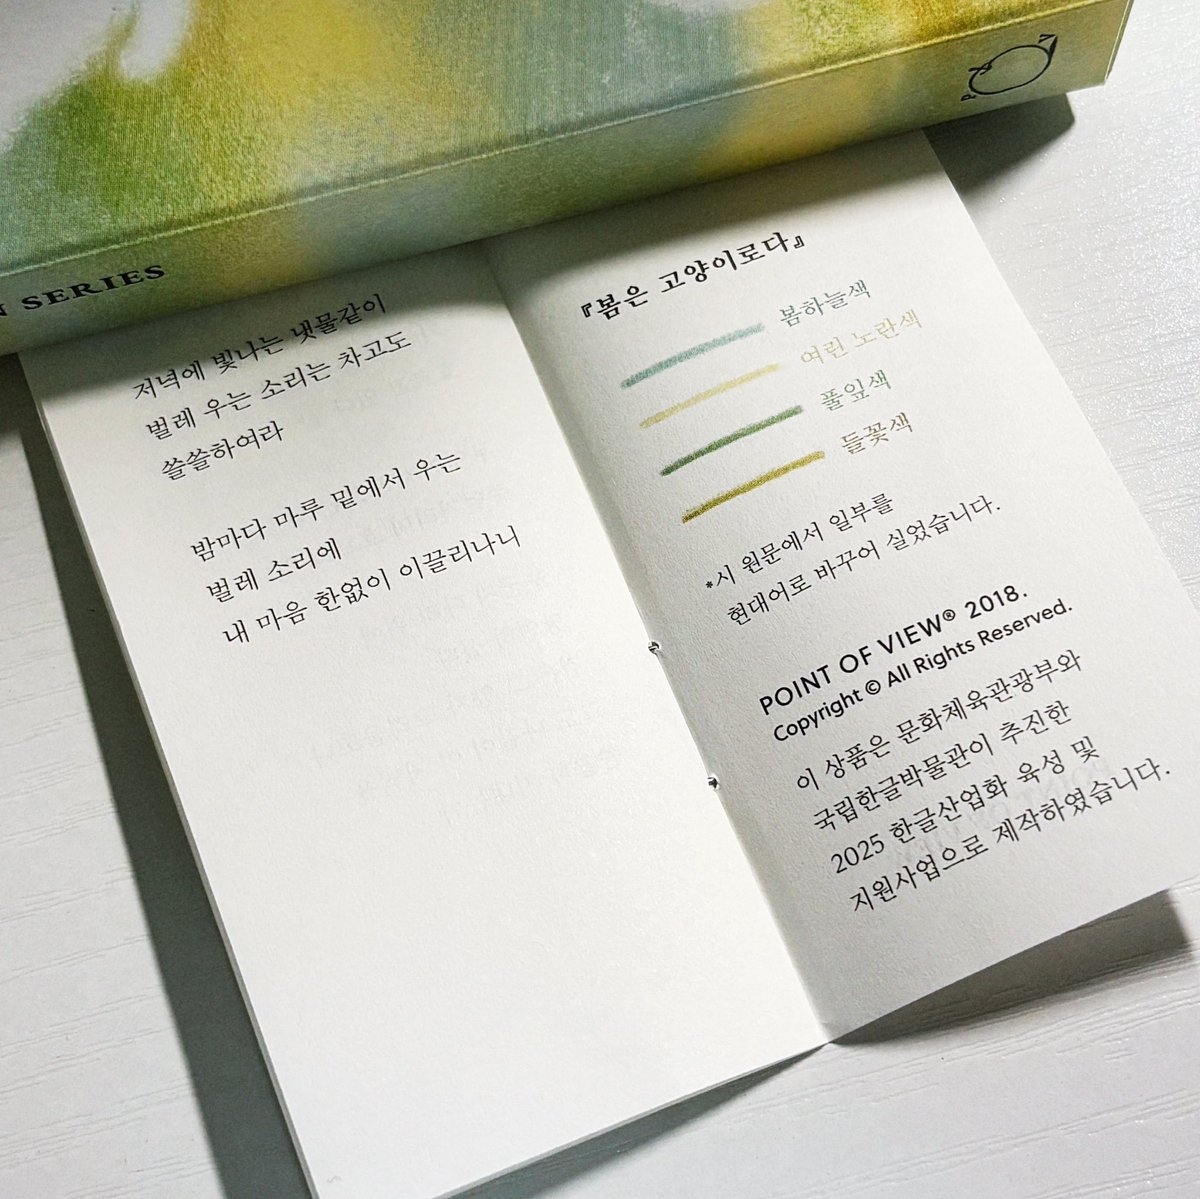 SERIES
P O V
저녁에 빛나는 냇물같이
벌레 우는 소리는 차고도
쓸쓸하여라
밤마다 마루 밑에서 우는
벌레 소리에
내 마음 한없이 이끌리나니
『봄은 고양이로다』
봄하늘색
여린 노란색
풀잎색
들꽃색
*시 원문에서 일부를
현대어로 바꾸어 실었습니다.
POINT OF VIEW® 2018.
Copyright © All Rights Reserved.
이 상품은 문화체육관광부와
국립한글박물관이 추진한
2025 한글산업화 육성 및
지원사업으로 제작하였습니다.